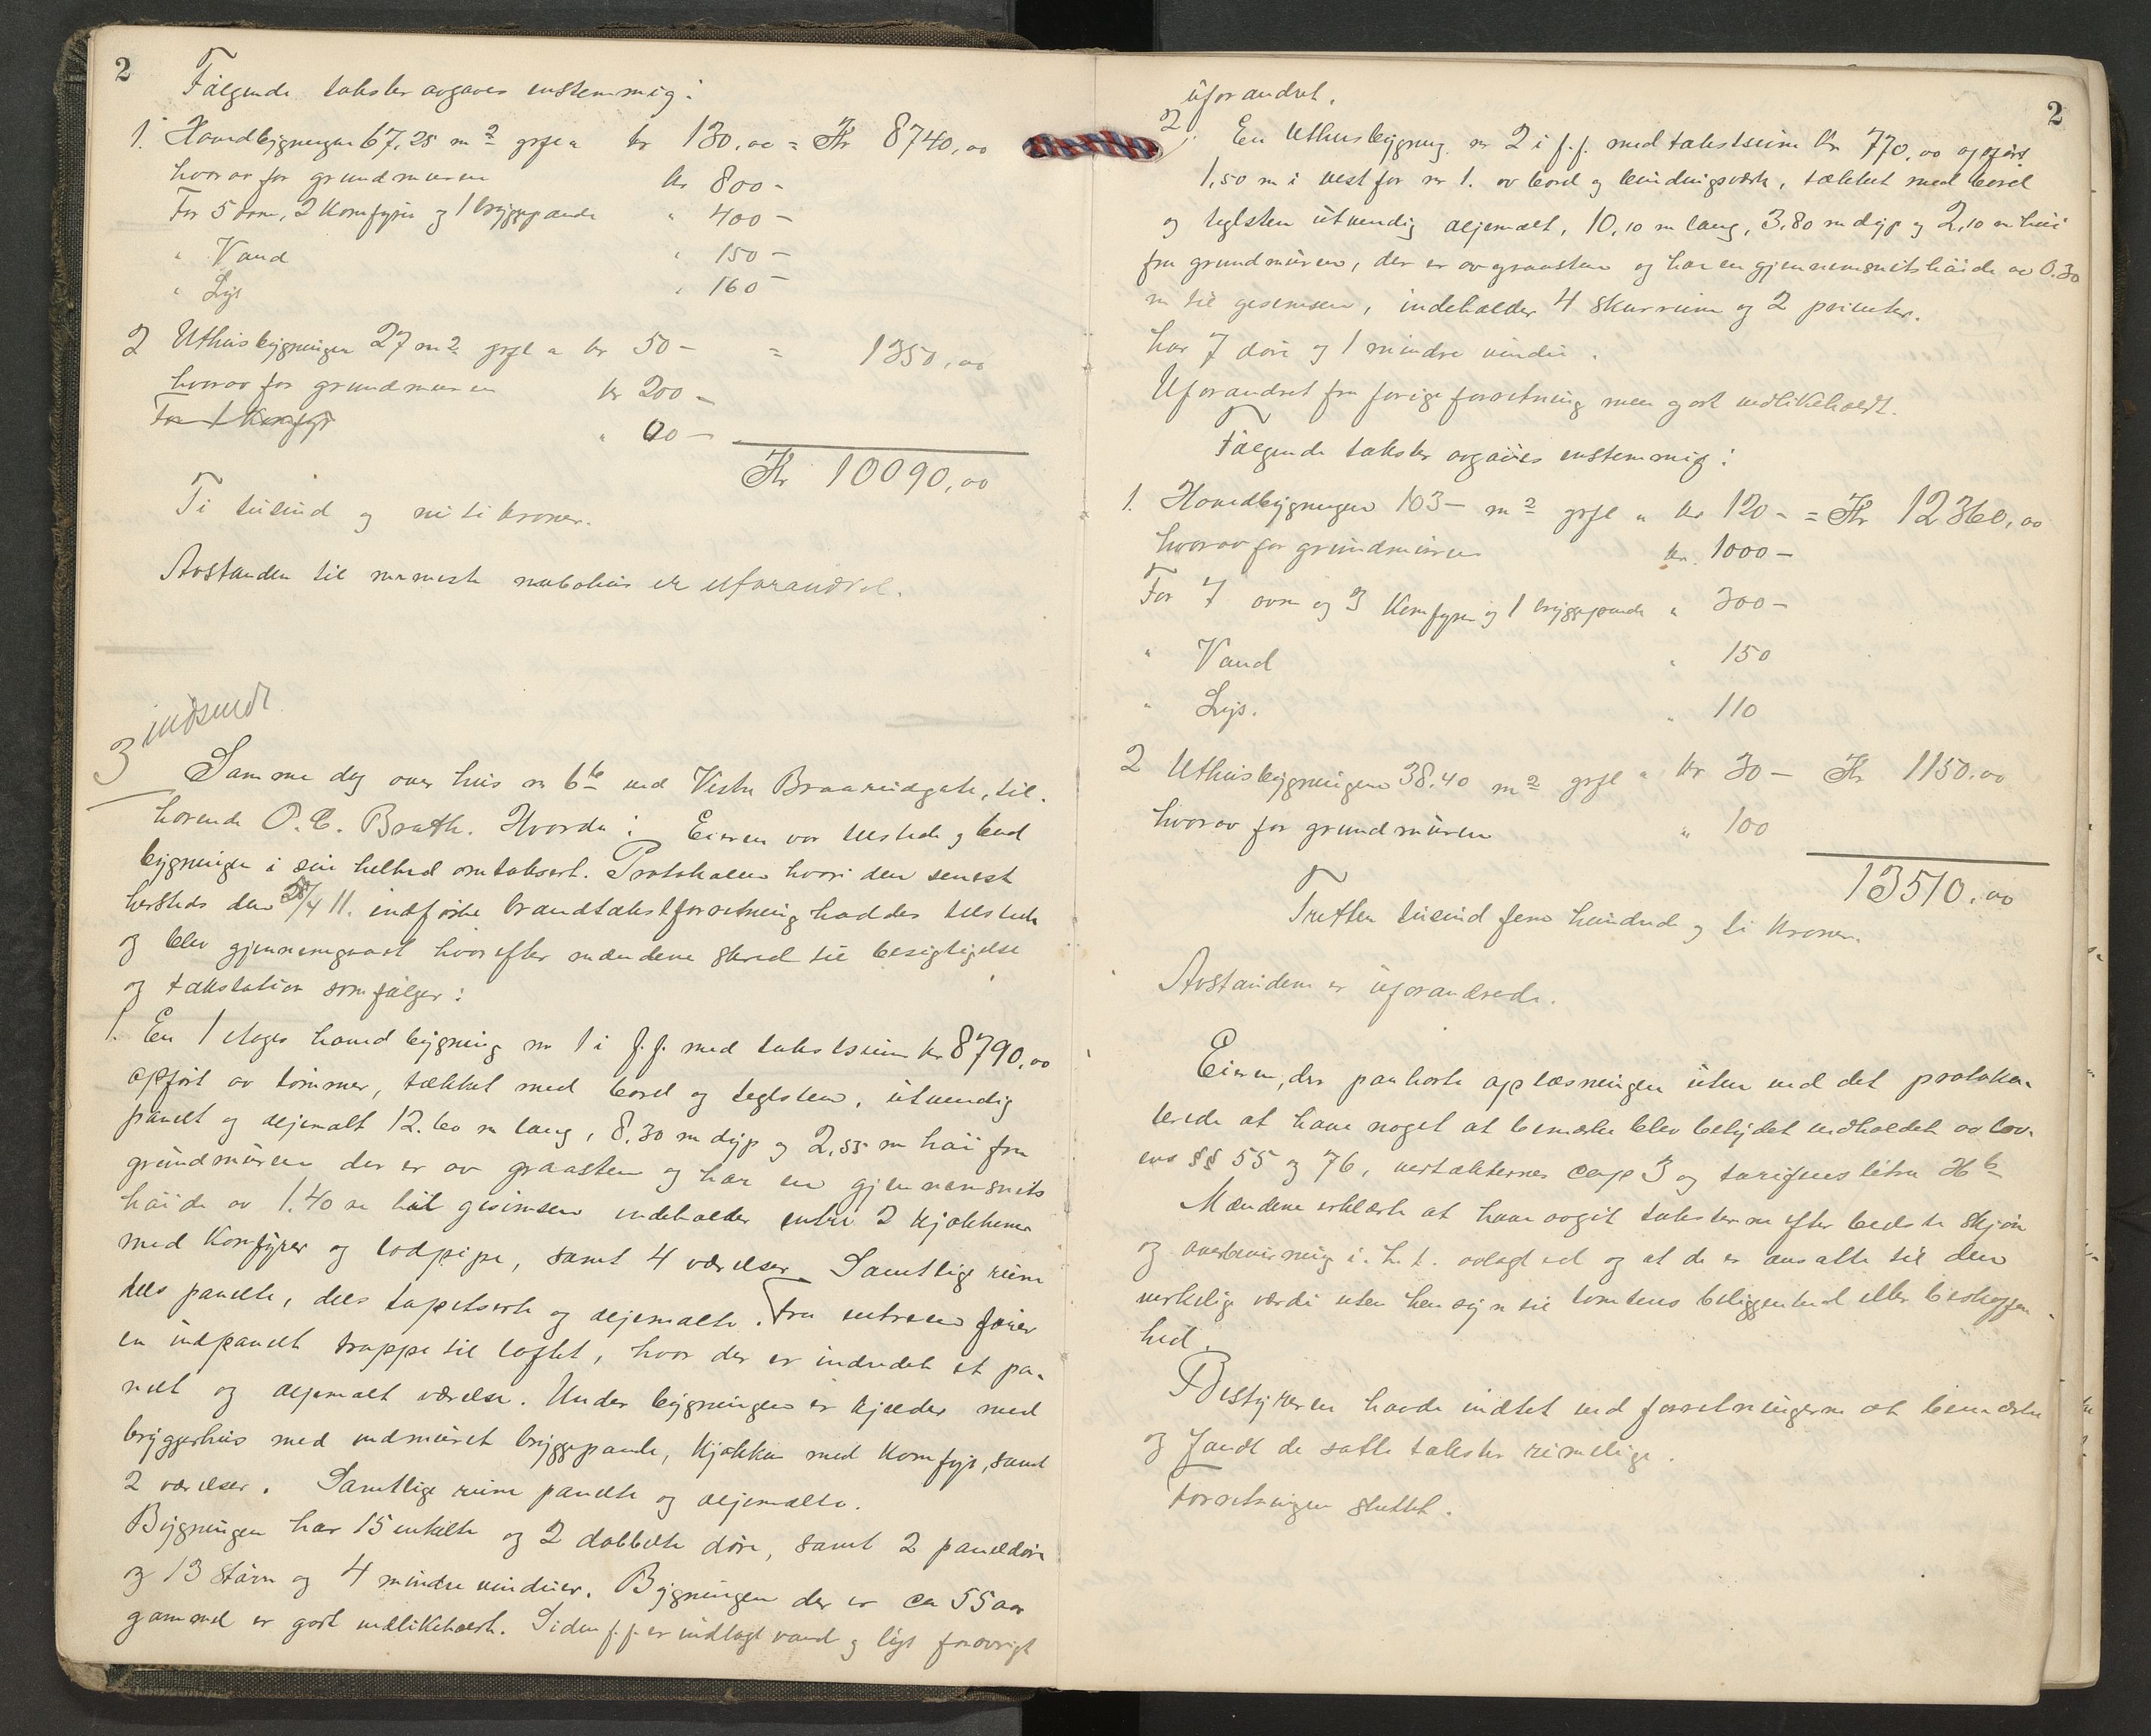 2
Følgende takster avgaves enstemmig:
1. Hovedbygningen 67,25 m² grfl a kr 130,00 = Kr 8740,00
hvorav for grundmuren kr 800 -
For 5 ovne, 2 Komfyrer og 1 bryggepande " 400 -
" Vand " 150 -
" Lys " 160 -
2 Uthusbygningen 27 m² grfl a kr 50 - = 1350,00
hvorav for grundmuren kr 200 -
For 1 Komfyr " 00 -
Kr 10090,00
Ti tusind og nitti kroner.
Avstanden til nærmeste nabohus er uforandret.
indsendt
3 Samme dag over hus nr 6b ved Vestre Braarudgate, til-
hørende O. C. Braath. Hvorda: Eieren var tilstede og bad
bygningen i sin helhed omtaksert. Protokollen hvori den senest
hersteds den 28/4 11. indførte brandtakstforretning haddes tilstede
og blev gjennemgaat hvorefter mændene skred til besigtigelse
og takstation som følger:
1. En 1 etages hovedbygning nr 1 i f.f. med takstsum kr 8790,00
opført av tømmer, tækket med bord og teglsten, utvendig
panelt og oljemalt 12.60 m lang, 8,30 m dyp og 2,55 m høi fra
grundmuren der er av graasten og har en gjennemsnits
høide av 1.40 m til gesimsen indeholder entre 2 kjøkkener
med Komfyrer og lodpipe, samt 4 værelser. Samtlige rum
dels panelte, dels tapetserte og oljemalte. Fra entreen fører
en indpanelt trappe til loftet, hvor der er indredet et pa-
nelt og oljemalt værelse. Under bygningen er kjælder med
bryggerhus med indmuret bryggepande, kjøkken med Komfyr, samt
2 værelser. Samtlige rum panelte og oljemalte.
Bygningen har 15 enkelte og 2 dobbelte døre, samt 2 paneldøre
og 13 større og 4 mindre vinduer. Bygningen der er ca 55 aar
gammel er godt vedlikeholdt. Siden f.f. er indlagt vand og lys forøvrigt
2
uforandret.
2. En Uthusbygning nr 2 i f.f. med takstsum Kr 770,00 opført
1,50 m i vest for nr 1. av bord og bindingsverk, tækket med bord
og teglsten utvendig oljemalt, 10,10 m lang, 3,80 m dyp og 2,10 m høi
fra grundmuren, der er av graasten og har en gjennemsnitshøide av 0.30
m til gesimsen, indeholder 4 skurrum og 2 priveter.
har 7 døre og 1 mindre vindu.
Uforandret fra forrige forretning men godt vedlikeholdt.
Følgende takster avgaves enstemmig:
1. Hovedbygningen 103 - m² grfl a kr 120 - = Kr 12360,00
hvorav for grundmuren kr. 1000 -
For 7 ovne og 3 Komfyrer og 1 bryggepande " 300 -
" Vand " 150
" Lys. " 110
2 Uthusbygningen 38,40 m² grfl a kr 30 - Kr 1150.00
hvorav for grundmuren " 100
13510,00
Tretten tusind fem hundred og ti kroner.
Avstandene er uforandrede.
Eieren, der paahørte oplæsningen uten ved det protokol-
lerede at have noget at bemerke blev betydet indholdet av lov-
ens §§ 55 og 76, vertækternes cap 3 og tariffens litra H b
Mændene erklærte at have avgit taksterne efter bedste skjøn
og overbevisning i. h. t. avlagt ed og at de er ansatte til den
virkelige værdi uten hensyn til tomtens beliggenhed eller beskaffen-
hed.
Bestyreren havde indtet ved forretningerne at bemærke
og fandt de satte takster rimelige.
Forretningen sluttet.